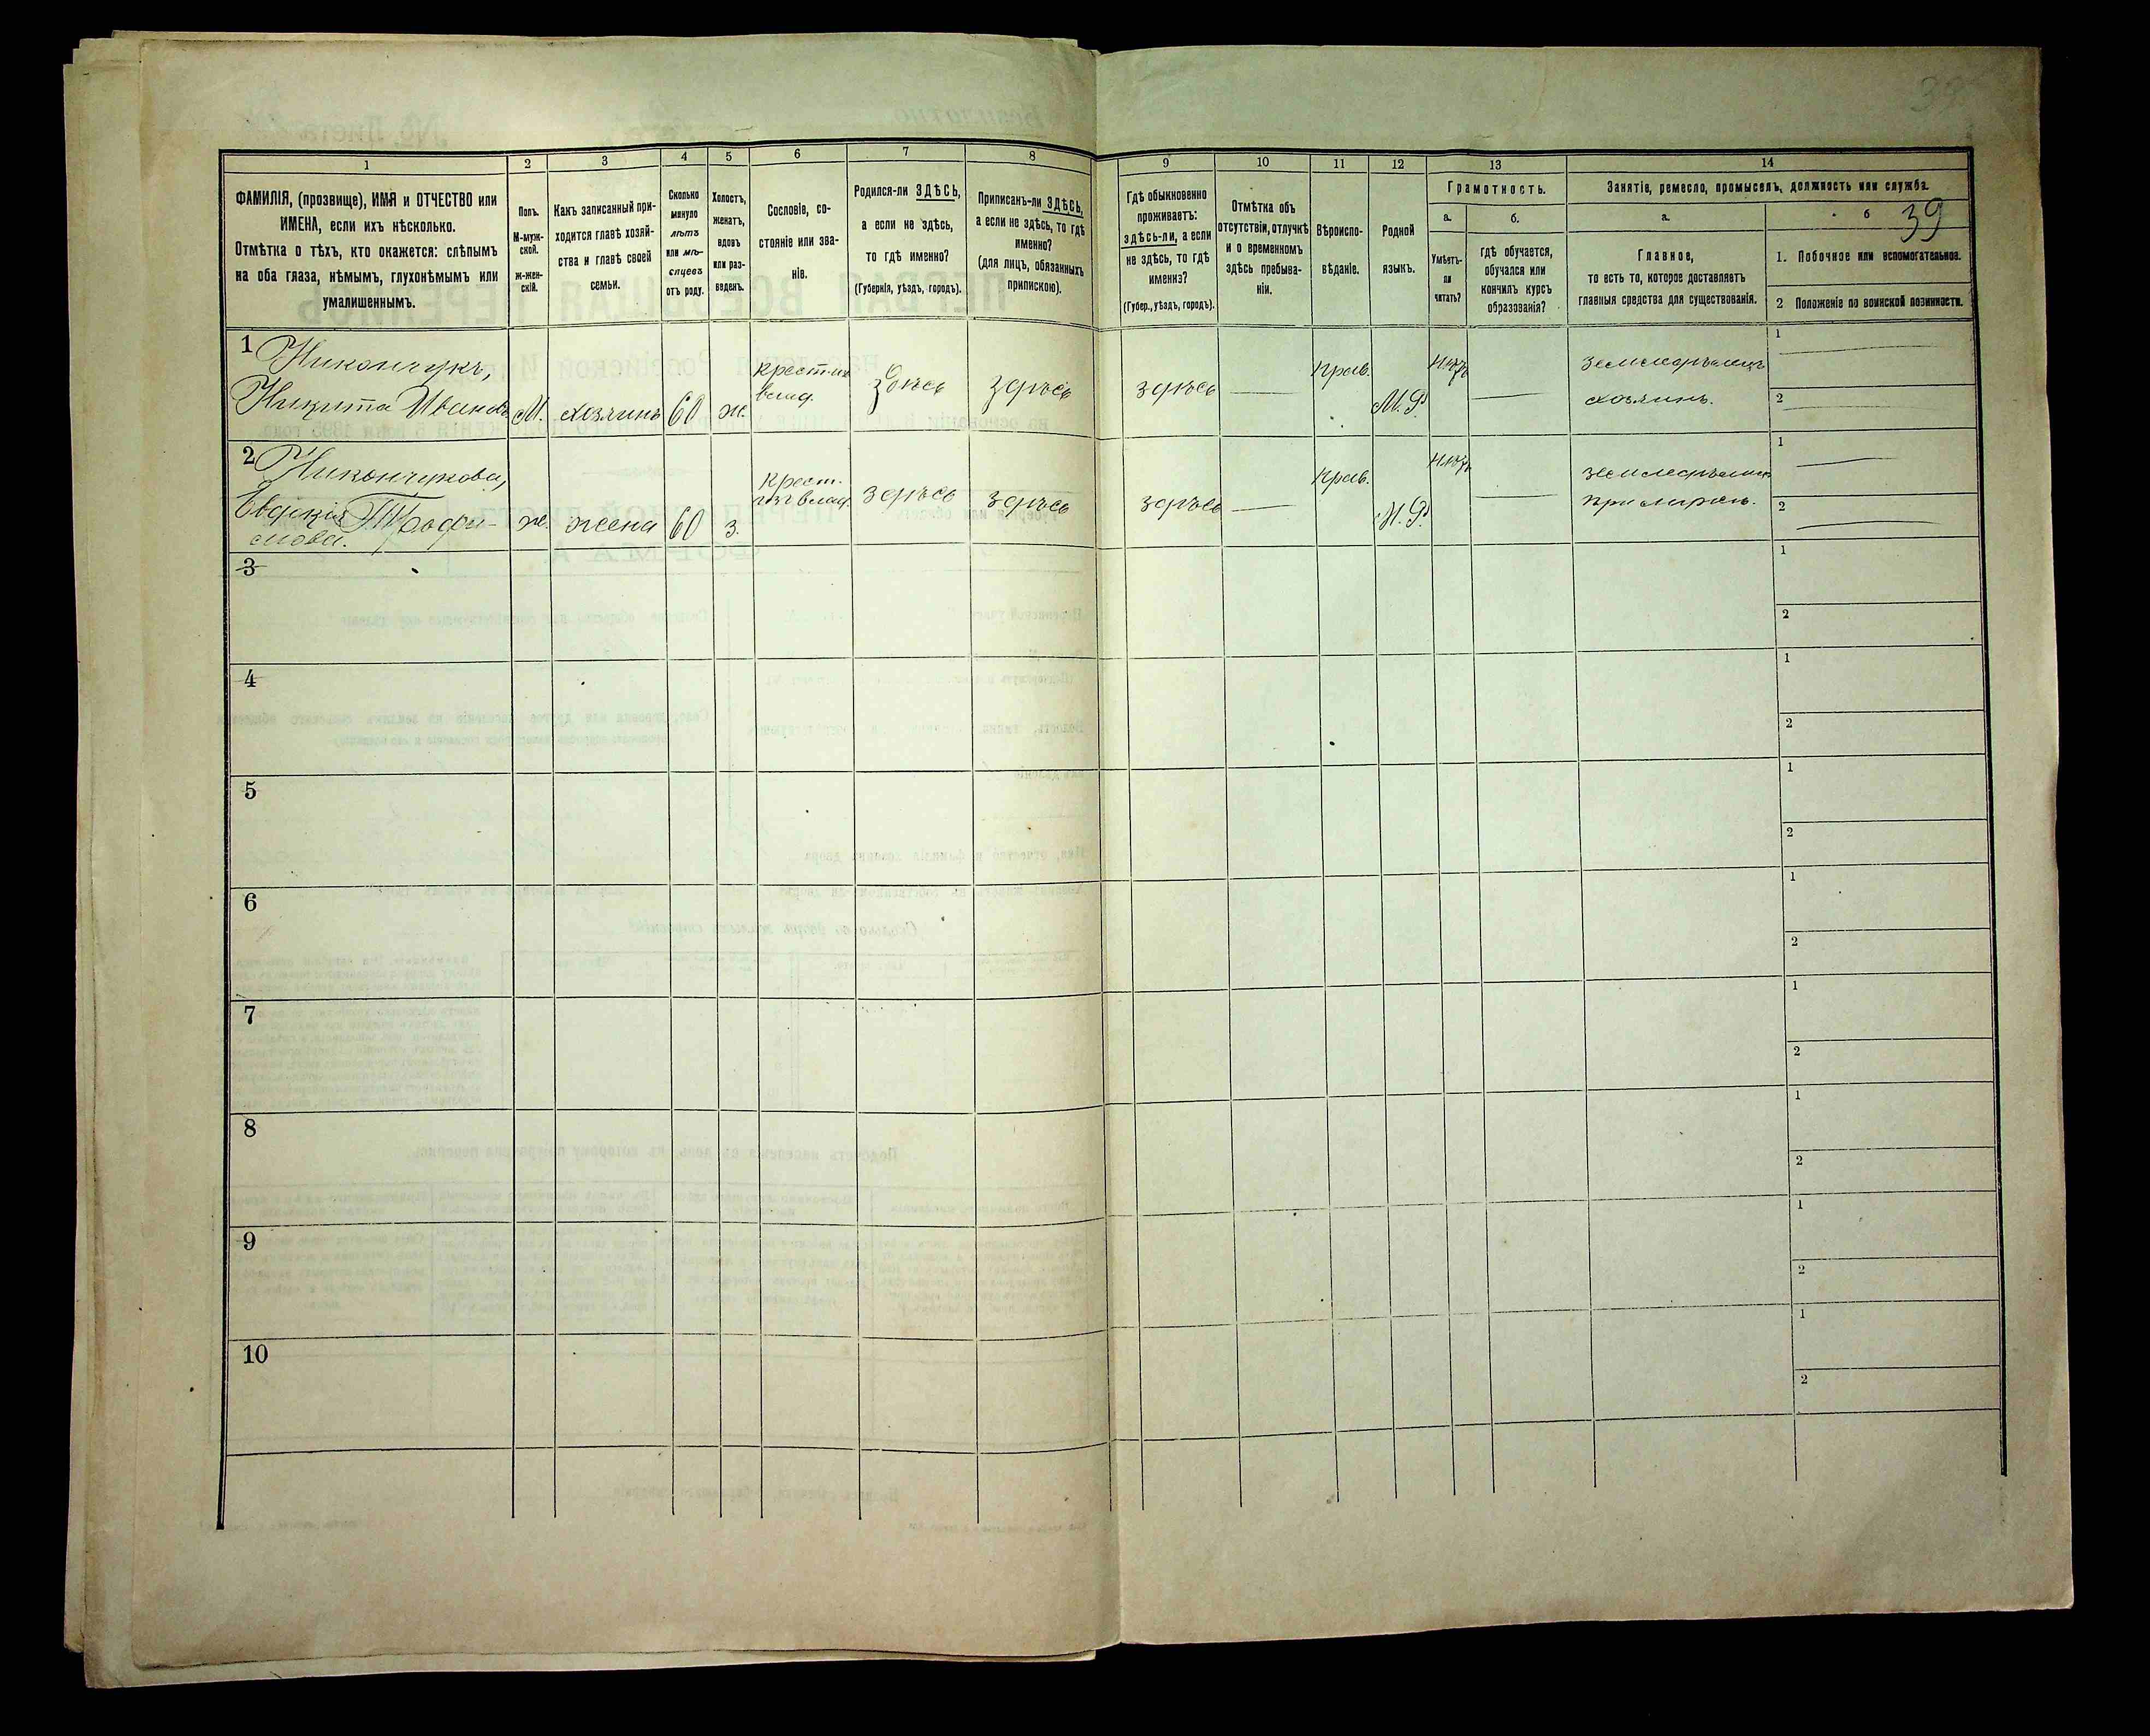 39
1
2
3
4
5
6
7
8
ФАМИЛІЯ, (прозвище), ИМЯ и ОТЧЕСТВО или
ИМЕНА, если ихъ нѣсколько.
Отмѣтка о тѣхъ, кто окажется: слѣпымъ
на оба глаза, нѣмымъ, глухонѣмымъ или
умалишеннымъ.
Полъ.
М-муж-
ской.
ж-жен-
скій.
Какъ записанный при-
ходится главѣ хозяй-
ства и главѣ своей
семьи.
Сколько
минуло
лѣтъ
или мѣ-
сяцевъ
отъ роду.
Холостъ,
женатъ,
вдовъ
или раз-
веденъ.
Сословіе, со-
стояніе или зва-
ніе.
Родился-ли ЗДѢСЬ,
а если не здѣсь,
то гдѣ именно?
(Губернія, уѣздъ, городъ).
Приписанъ-ли ЗДѢСЬ,
а если не здѣсь, то гдѣ
именно?
(для лицъ, обязанныхъ
припискою).
9
10
11
12
13
14
Гдѣ обыкновенно
проживаетъ:
здѣсь-ли, а если
не здѣсь, то гдѣ
именно?
(Губер., уѣздъ, городъ).
Отмѣтка объ
отсутствіи, отлучкѣ
и о временномъ
здѣсь пребыва-
ніи.
Вѣроиспо-
вѣданіе.
Родной
языкъ.
Грамотность.
а.
б.
Умѣетъ-
ли
читать?
гдѣ обучается,
обучался или
кончилъ курсъ
образованія?
Занятіе, ремесло, промыселъ, должность или служба.
а.
б
39
Главное,
то есть то, которое доставляетъ
главныя средства для существованія.
1. Побочное или вспомогательное.
2 Положеніе по воинской повинности.
1
Никончукъ,
Никита Ивановъ
М.
хозяинъ
60
ж.
здѣсь
здѣсь
здѣсь
Прав.
М. Р.
земледѣлецъ
хозяинъ.
1
2
2
Никончукова,
Евдокія Трофи-
мова.
ж.
жена
60
з.
Крест.
здѣсь
здѣсь
здѣсь
Прав.
М. Р.
1
2
3
1
2
4
1
2
5
1
2
6
1
2
7
1
2
8
1
2
9
1
2
10
1
2